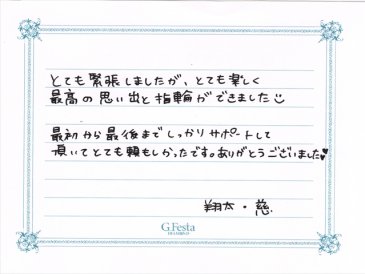 とても緊張しましたが、とても楽しく
最高の思い出と指輪ができました☺
最初から最後までしっかりサポートして
頂いてとても頼もしかったです。ありがとうございました♥
翔太・慈
G.Festa